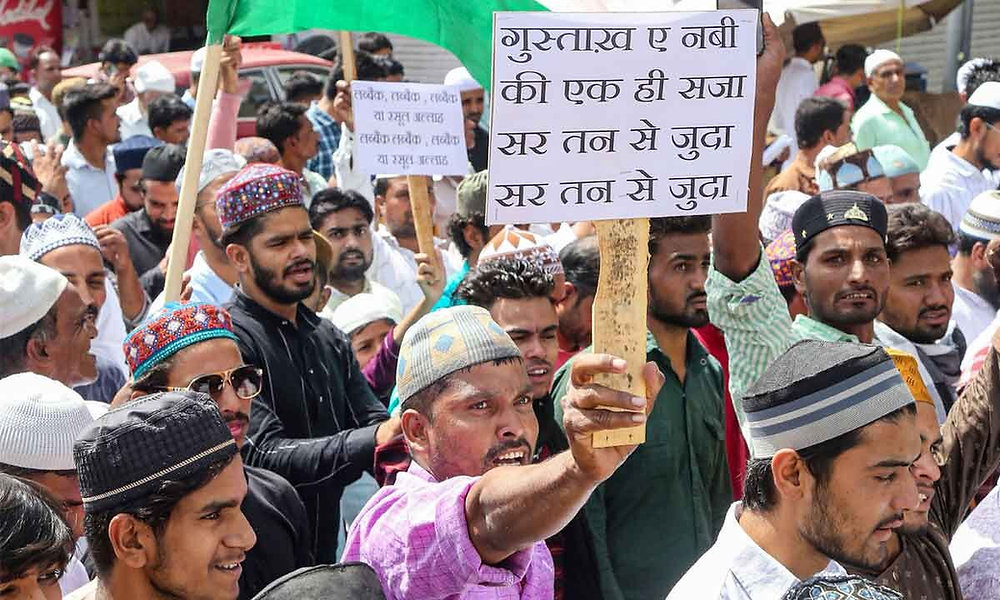 गुस्ताख़ ए नबी
की एक ही सजा
सर तन से जुदा
सर तन से जुदा
लब्बैक, लब्बैक , लब्बैक
या अल्लाह
लब्बैक लब्बैक , लब्बैक
या रसूल अल्लाह